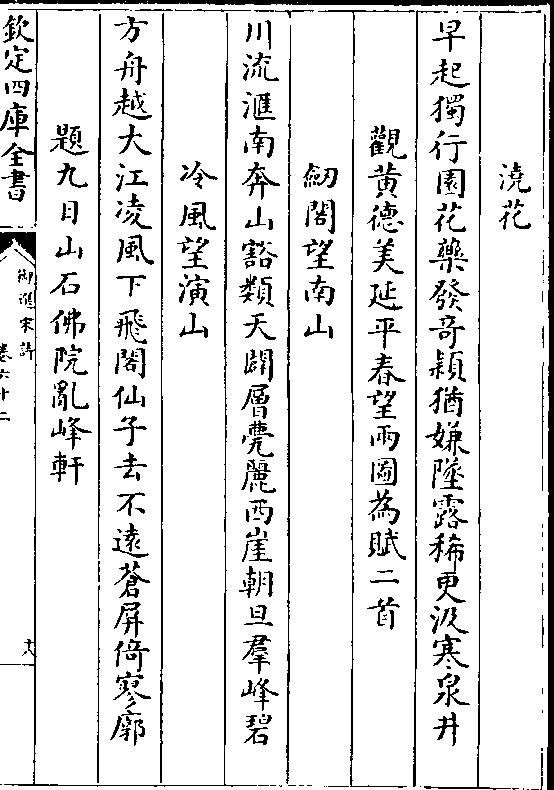 澆花
早起獨行園花藥發奇穎猶嫌墜露稀更汲寒泉井
觀黄德美延平春望兩圖為賦二首
劒閣望南山
川流滙南奔山豁類天闢層甍麗西崖朝旦羣峰碧
冷風望演山
方舟越大江凌風下飛閣仙子去不逺蒼屏倚寥廓
題九日山石佛院亂峰軒
欽定四庫全書
御選宋詩
卷六十二